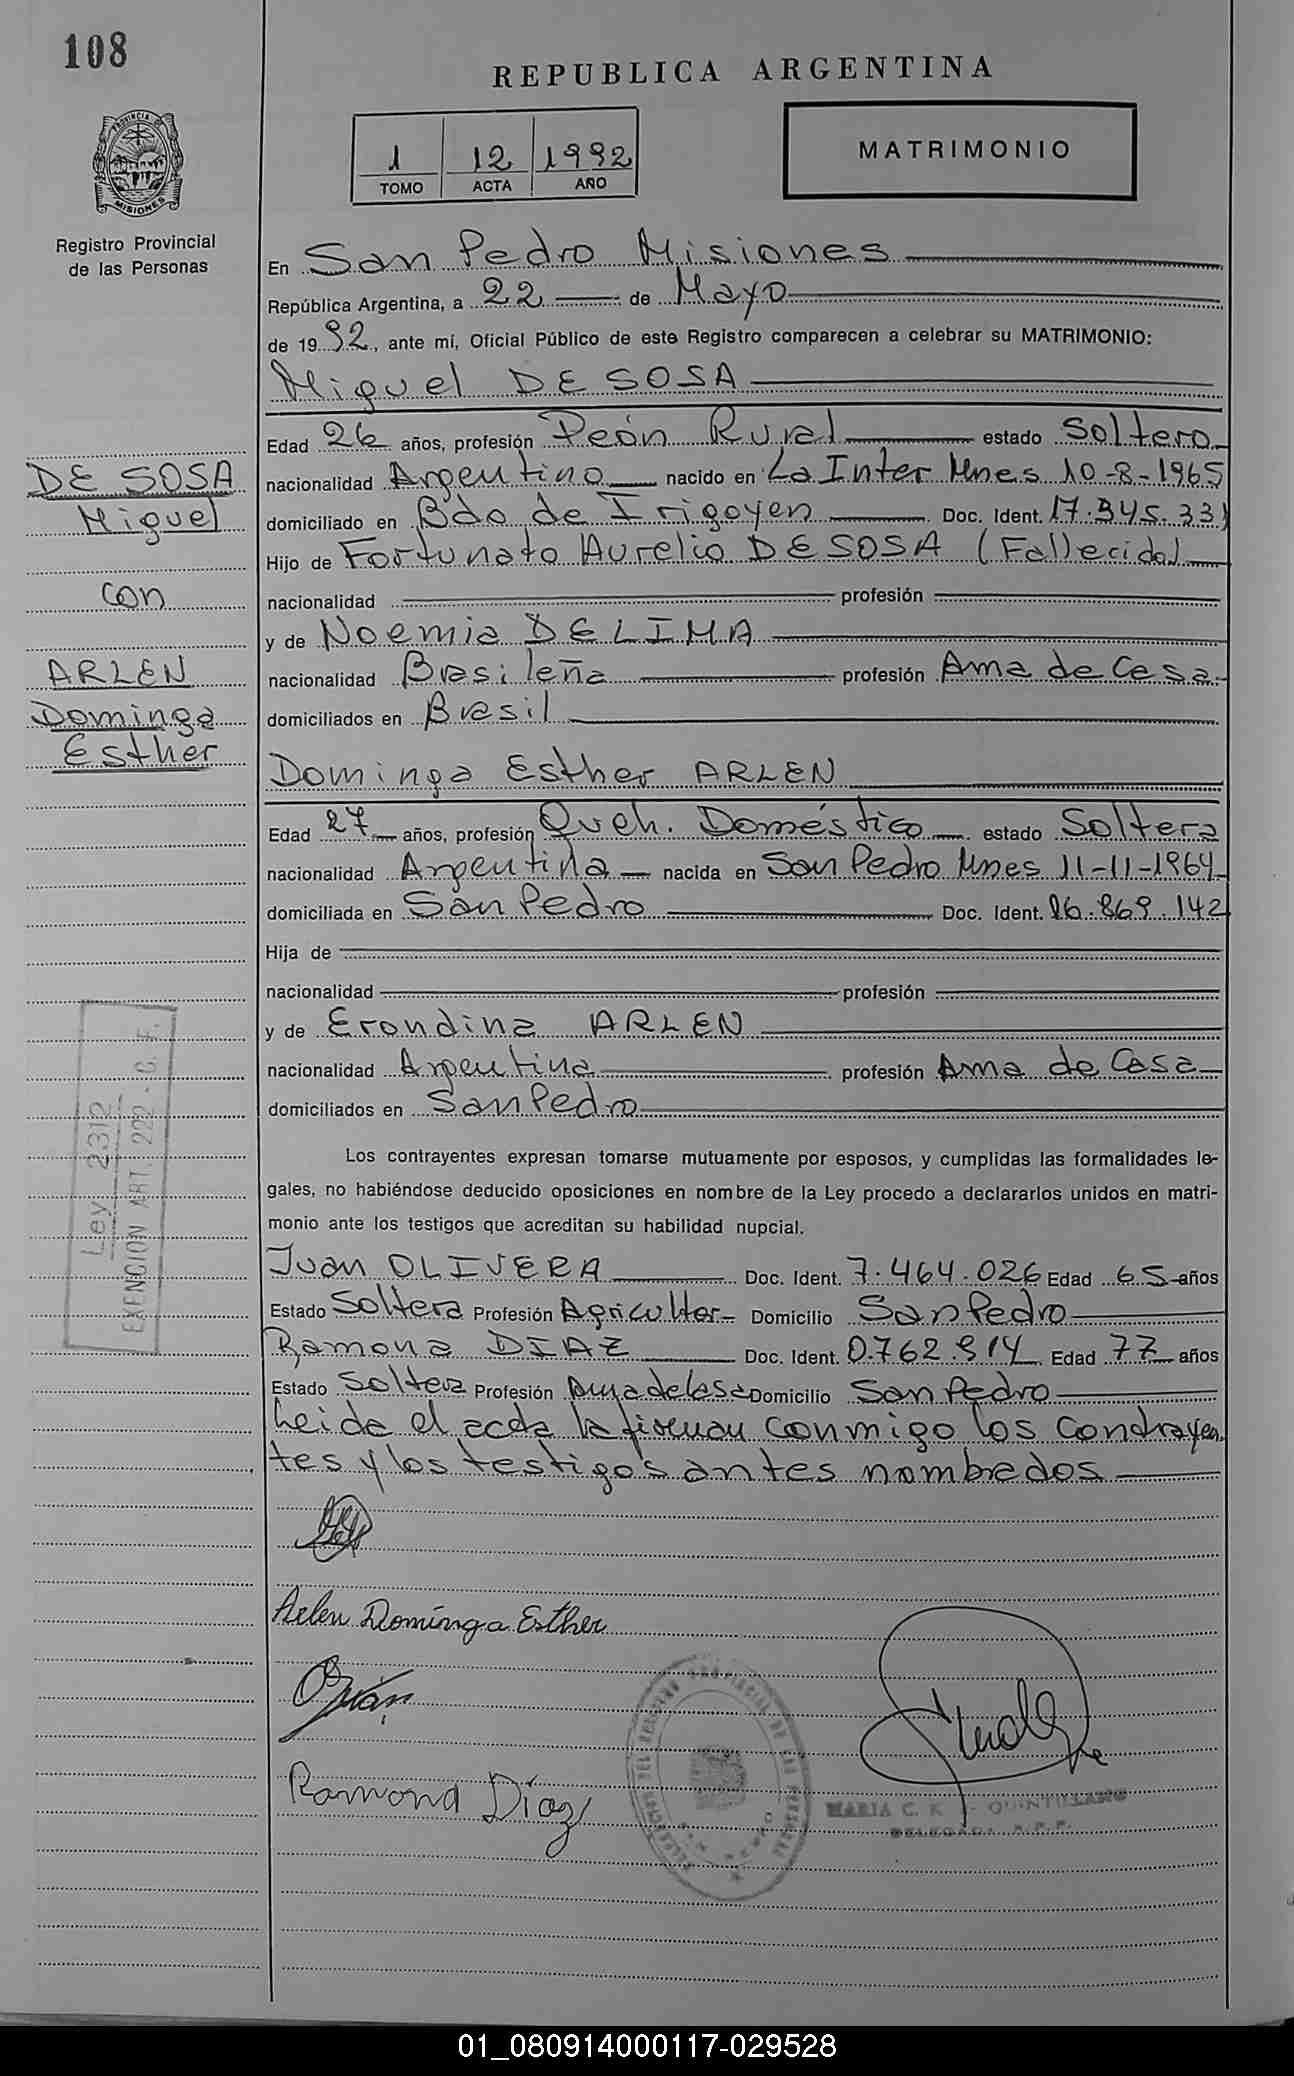 108
REPUBLICA ARGENTINA
PROVINCIA DE MISIONES
1 12 1992
TOMO ACTA AÑO
MATRIMONIO
Registro Provincial
de las Personas
En San Pedro Misiones
República Argentina, a 22 de Mayo
de 1992, ante mí, Oficial Público de este Registro comparecen a celebrar su MATRIMONIO:
Miguel DE SOSA
Edad 26 años, profesión Peón Rural estado Soltero
DE SOSA
nacionalidad Argentino nacido en La Inter Mnes 10-8-1965
Miguel
domiciliado en Bdo de Irigoyen Doc. Ident. 17.345.331
Hijo de Fortunato Aurelio DE SOSA (Fallecido)
con
nacionalidad profesión
y de Noemia DE LIMA
ARLEN
nacionalidad Brasileña profesión Ama de Casa
Dominga
domiciliados en Brasil
Esther
Dominga Esther ARLEN
Edad 27 años, profesión Queh. Doméstico estado Soltera
nacionalidad Argentina nacida en San Pedro Mnes 11-11-1964
domiciliada en San Pedro Doc. Ident. 16.869.142
Hija de
nacionalidad profesión
y de Erondina ARLEN
nacionalidad Argentina profesión Ama de Casa
domiciliados en San Pedro
Ley 2312
EXENCION ART. 222 - C. F.
Los contrayentes expresan tomarse mutuamente por esposos, y cumplidas las formalidades le-
gales, no habiéndose deducido oposiciones en nombre de la Ley procedo a declararlos unidos en matri-
monio ante los testigos que acreditan su habilidad nupcial.
Juan OLIVERA Doc. Ident. 7.464.026 Edad 65 años
Estado Soltera Profesión Agricultor Domicilio San Pedro
Ramona DIAZ Doc. Ident. 0.762.914 Edad 77 años
Estado Soltera Profesión Ama de Casa Domicilio San Pedro
Leida el acta la firman conmigo los contrayen
tes y los testigos antes nombrados
Arlen Dominga Esther
Ramona Díaz
MARIA C. K QUINTILLANO
DELEGADA R.P.P.
01_080914000117-029528